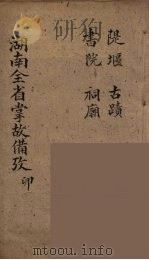 隄堰 古蹟
書院 祠廟
湖南全省掌故備攷
卬
mtoou.info